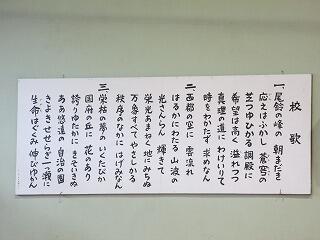 校歌
一、尾鈴の峰の 朝まだき
応えはふかし 蒼穹の
芝つゆひかる 調殿に
希望は高く 溢れつつ
真理の道に わけいりて
時をわかたず 求めなん
二、西都の空に 雲流れ
はるかにわたる 山波の
光さんらん 輝きて
栄光あまねく 地にみちぬ
万象すべて やさしかる
秩序のなかに はげみなん
三、栄枯の夢の いくたびか
国府の丘に 花のあり
誇りゆたかに きそいきぬ
ああ悠遠の 自治の園
きよきせせらぎ 一ツ瀬に
生命はぐくみ 伸びゆかん